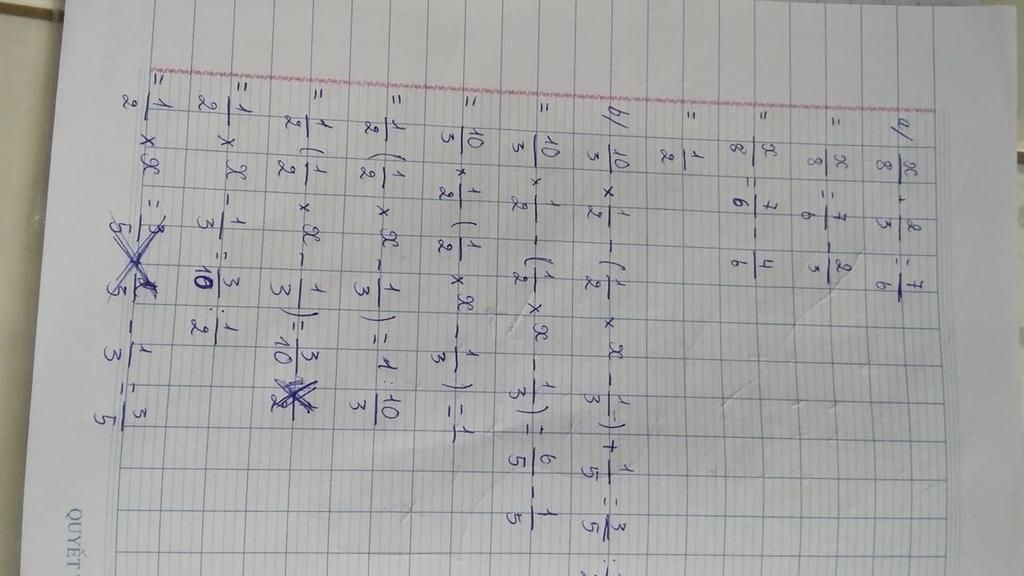 a) x/8 + 2/3 = 7/6
= x/8 = 7/6 - 2/3
= x/8 = 7/6 - 4/6
= 1/2
b) 10/3 × 1/2 - (1/2 × x - 1/3) + 1/5 = 3/5 :
= 10/3 × 1/2 - (1/2 × x - 1/3) = 6/5 - 1/5
= 10/3 × 1/2 (1/2 × x - 1/3) = 1
= 1/2 (1/2 × x - 1/3) = 1 : 10/3
= 1/2 (1/2 × x - 1/3) = 3/10
= 1/2 × x - 1/3 = 3/10 : 1/2
= 1/2 × x = 1/3 - 3/5
QUYẾT